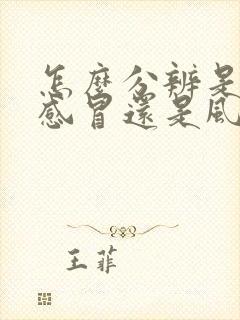 怎麼分辨是
感冒還是風
王菲